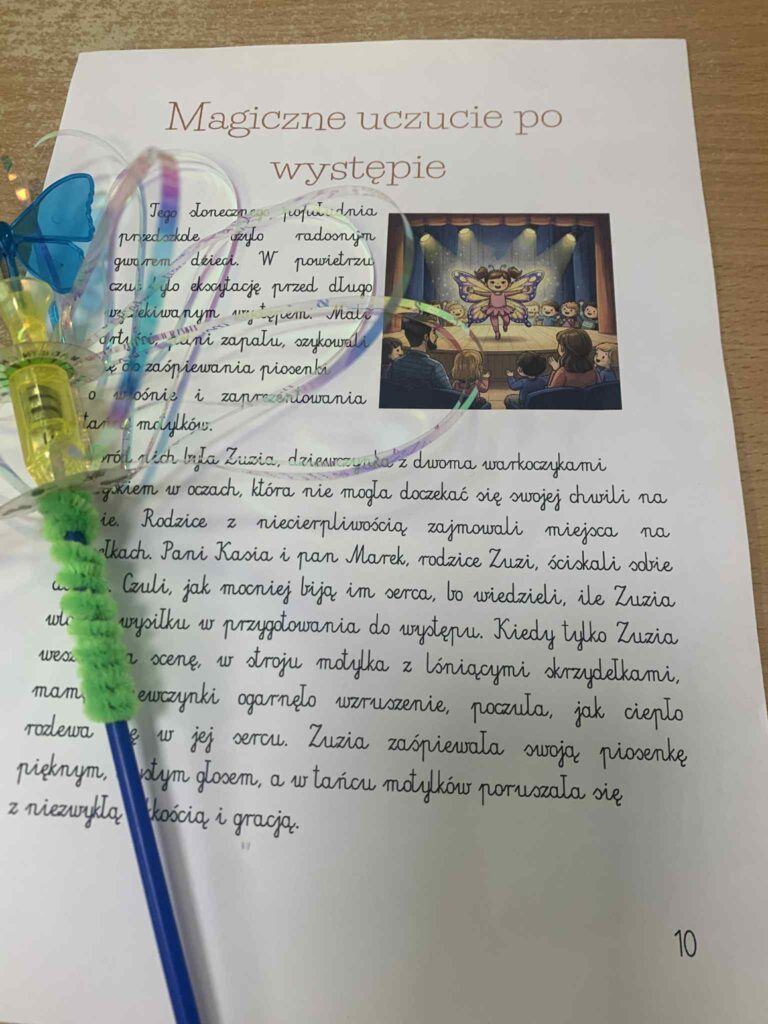 Magiczne uczucie po
występie
Tego słonecznego popołudnia
przedszkole żyło radosnym
gwarem dzieci. W powietrzu
czuć było ekscytację przed długo
wyczekiwanym występem. Małe
pełni zapału, szykowali
do zaśpiewania piosenki
o wiośnie i zaprezentowania
tańca motylków.
Wśród nich była Zuzia, dziewczynka z dwoma warkoczykami
w oczach, która nie mogła doczekać się swojej chwili na
Rodzice z niecierpliwością zajmowali miejsca na
Pani Kasia i pan Marek, rodzice Zuzi, ściskali sobie
Czuli, jak mocniej biją im serca, bo wiedzieli, ile Zuzia
wysiłku w przygotowania do występu. Kiedy tylko Zuzia
scenę, w stroju motylka z lśniącymi skrzydełkami,
ogarnęło wzruszenie, poczuła, jak ciepło
rozlewa się w jej sercu. Zuzia zaśpiewała swoją piosenkę
pięknym, głosem, a w tańcu motylków poruszała się
z niezwykłą i gracją.
10